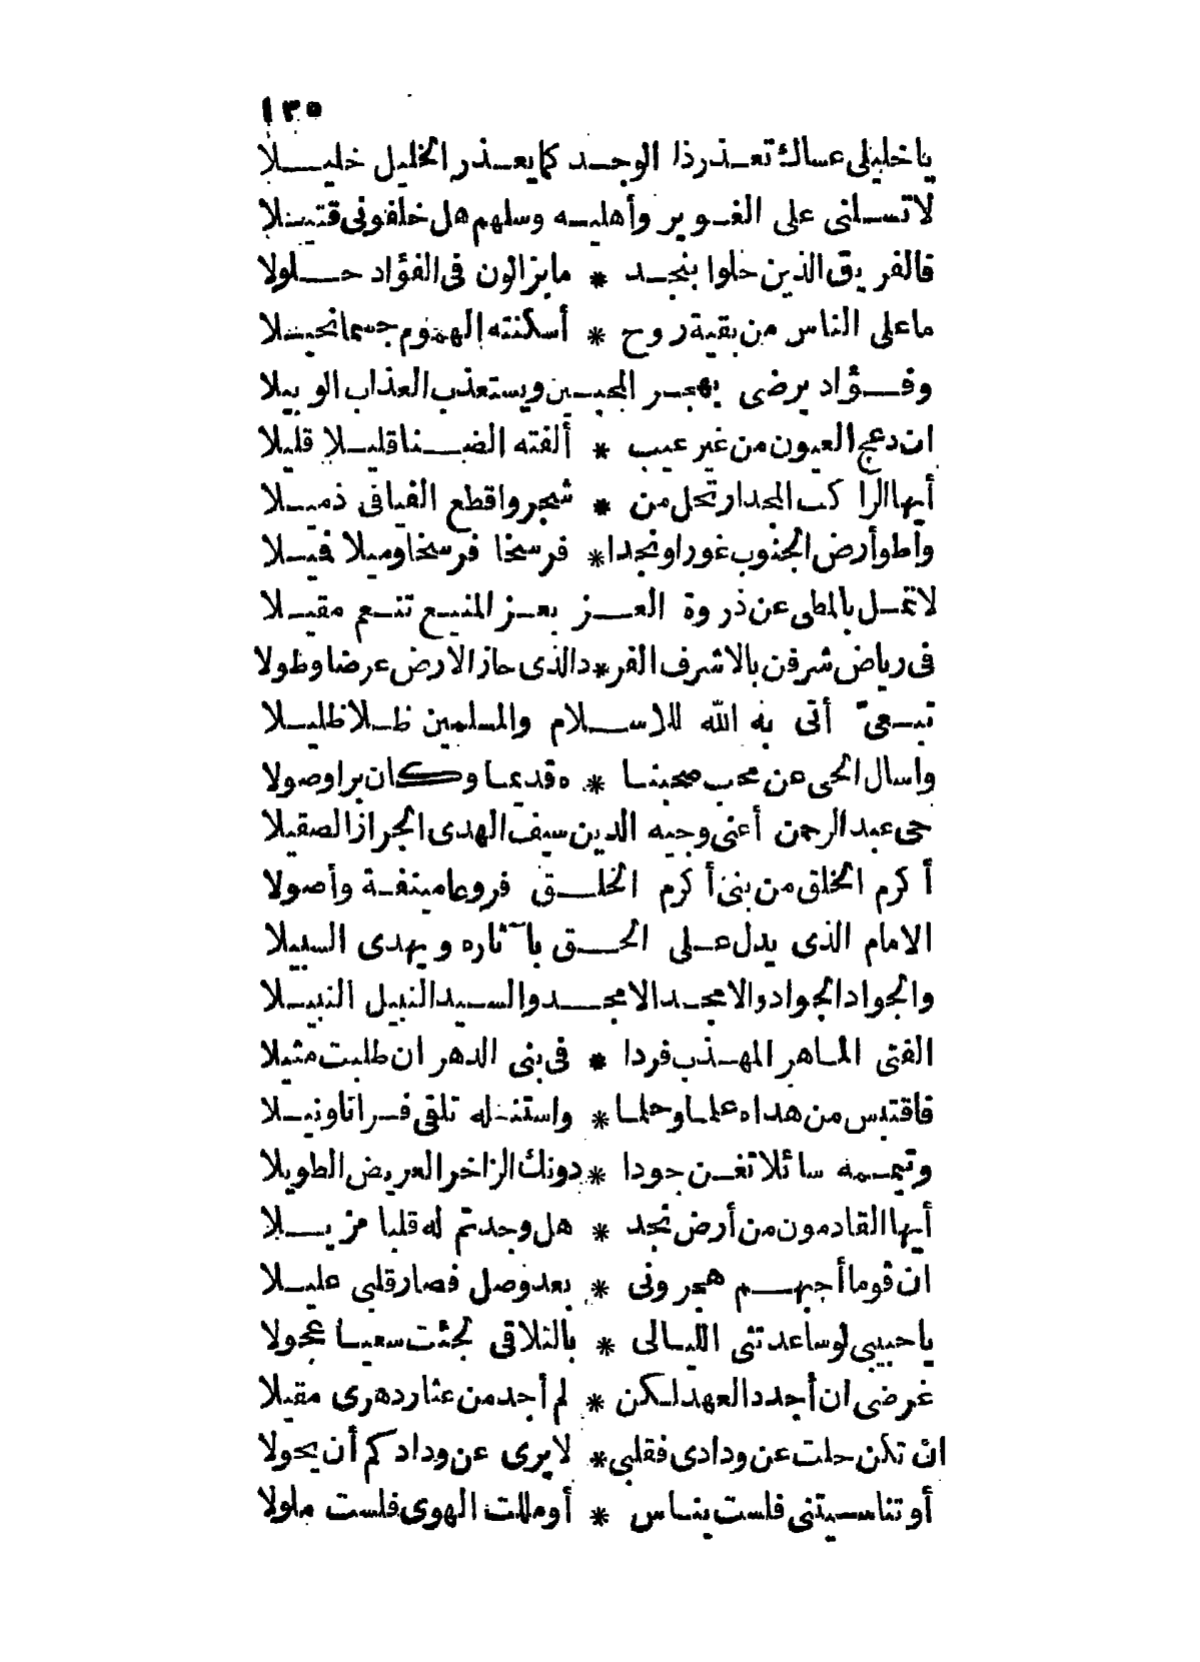 ١٣٥
يا خليلى عساك تعذر ذا الوجد كما يعذر الخليل خليلا
لا تسلنى على الغوير وأهليه وسلهم هل خلفونى قتيلا
فالفريق الذين حلوا بنجد * ما يزالون فى الفؤاد حلولا
ما على الناس من بقية روح * أسكنته الهموم جسما نحيلا
وفؤاد يرضى بهجر المحبين ويستعذب العذاب الوبيلا
ان دعج العيون من غير عيب * ألفته الضنا قليلا قليلا
أيها الراكب المجدار تحل من * شجر واقطع الفيافى ذميلا
وأطو أرض الجنوب غورا ونجدا * فرسخا فرسخا وميلا فميلا
لا تمل بالمطى عن ذروة العز بعز المنيع تنعم مقيلا
فى رياض شرفن بالاشرف الفر * د الذى حاز الارض عرضا وطولا
تبعىّ أتى به الله للاسلام والمسلمين ظلا ظليلا
واسال الحى عن محب صحبنا * ه قديما وكان برا وصولا
حى عبد الرحمن أعنى وجيه الدين سيف الهدى الجراز الصقيلا
أكرم الخلق من بنى أكرم الخلق فروعا منيفة وأصولا
الامام الذى يدل على الحق بآثاره ويهدى السبيلا
والجواد الجواد والامجد الامجد والسيد النبيل النبيلا
الفتى الماهر المهذب فردا * فى بنى الدهر ان طلبت مثيلا
فاقتبس من هداه علما وحلما * واستنله تلقى فراتا ونيلا
وتيممه سائلا تغن جودا * دونك الزاخر العريض الطويلا
أيها القادمون من أرض نجد * هل وجدتم له قلبا مزيلا
ان قوما أحبهم هجرونى * بعد وصل فصار قلبى عليلا
يا حبيبى لو ساعدتنى الليالى * بالتلاقى لجئت سعيا عجولا
غرضى ان أجدد العهد لكن * لم أجد من عثار دهرى مقيلا
ان تكن حلت عن ودادى فقلبى * لا يرى عن ودادكم أن يحولا
أو تناسيتنى فلست بناس * أو مللت الهوى فلست ملولا